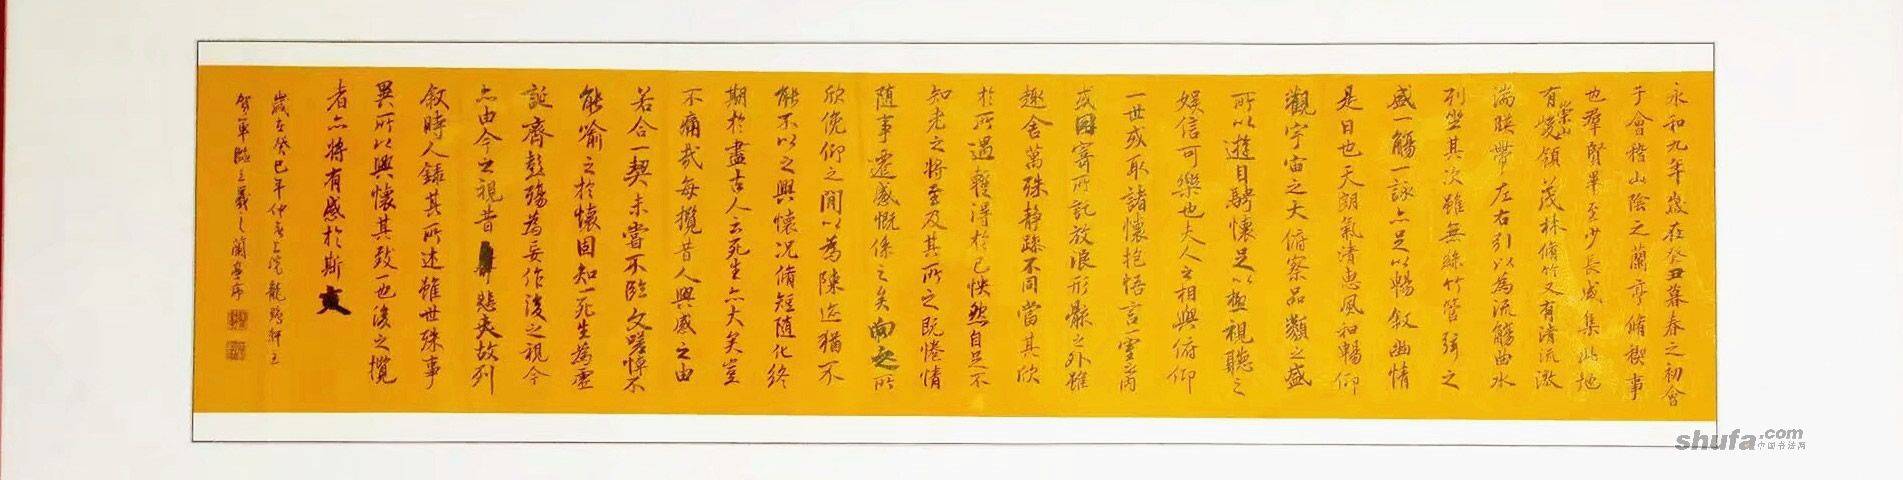 永和九年歲在癸丑暮春之初會
于會稽山陰之蘭亭脩稧事
也羣賢畢至少長咸集此地
有崇山峻領茂林脩竹又有清流激
湍暎帶左右引以為流觴曲水
列坐其次雖無絲竹管弦之
盛一觴一詠亦足以暢敘幽情
是日也天朗氣清惠風和暢仰
觀宇宙之大俯察品類之盛
所以遊目騁懷足以極視聽之
娛信可樂也夫人之相與俯仰
一世或取諸懷抱悟言一室之內
或因寄所託放浪形骸之外雖
趣舍萬殊靜躁不同當其欣
於所遇輕得於己怏然自足不
知老之將至及其所之既惓情
隨事遷感慨係之矣向之所
欣俛仰之閒以為陳迹猶不
能不以之興懷況脩短隨化終
期於盡古人云死生亦大矣豈
不痛哉每攬昔人興感之由
若合一契未嘗不臨文嗟悼不
能喻之於懷固知一死生為虛
誕齊彭殤為妄作後之視今
亦由今之視昔悲夫故列
敘時人錄其所述雖世殊事
異所以興懷其致一也後之攬
者亦將有感於斯文
歲在癸巳年仲
軍臨王羲之蘭亭序
shufa.com
中国书法网